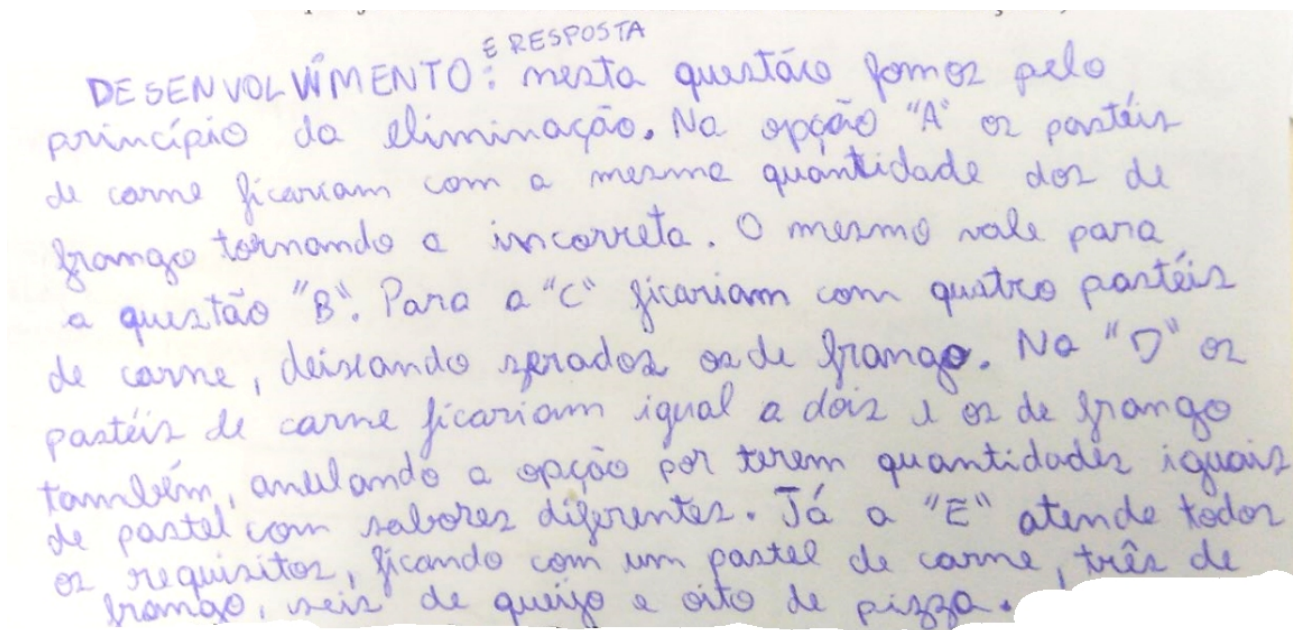 E RESPOSTA
DESENVOLVIMENTO: nesta questão fomos pelo
princípio da eliminação. Na opção "A" os pastéis
de carne ficariam com a mesma quantidade dos de
frango tornando a incorreta. O mesmo vale para
a questão "B". Para a "C" ficariam com quatro pastéis
de carne, deixando zerados os de frango. Na "D" os
pastéis de carne ficariam igual a dois e os de frango
também, anulando a opção por terem quantidades iguais
de pastel com sabores diferentes. Já a "E" atende todos
os requisitos, ficando com um pastel de carne, três de
frango, seis de queijo e oito de pizza.